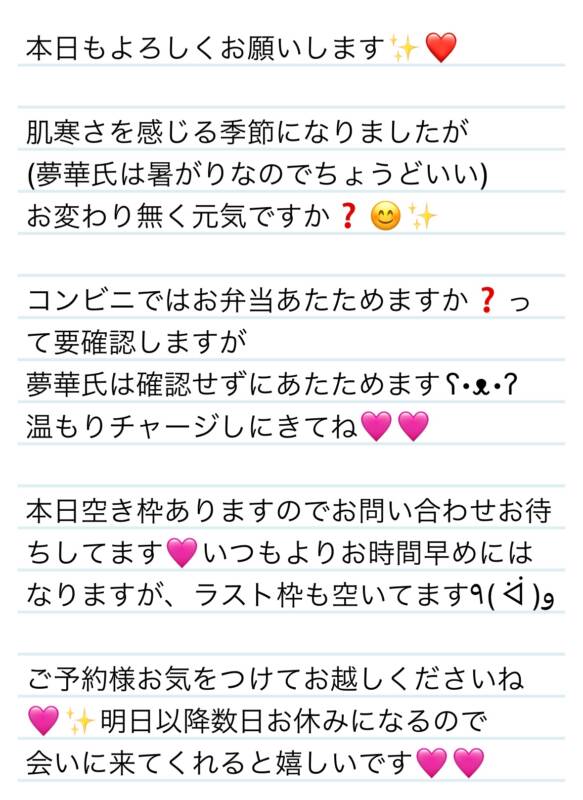 本日もよろしくお願いします✨❤️
肌寒さを感じる季節になりましたが
(夢華氏は暑がりなのでちょうどいい)
お変わり無く元気ですか❓😊✨
コンビニではお弁当あたためますか❓っ
て要確認しますが
夢華氏は確認せずにあたためますʕ•ᴥ•ʔ
温もりチャージしにきてね💗💗
本日空き枠ありますのでお問い合わせお待
ちしてます💗いつもよりお時間早めには
なりますが、ラスト枠も空いてます٩( ᐛ )و
ご予約様お気をつけてお越しくださいね
💗✨明日以降数日お休みになるので
会いに来てくれると嬉しいです💗💗